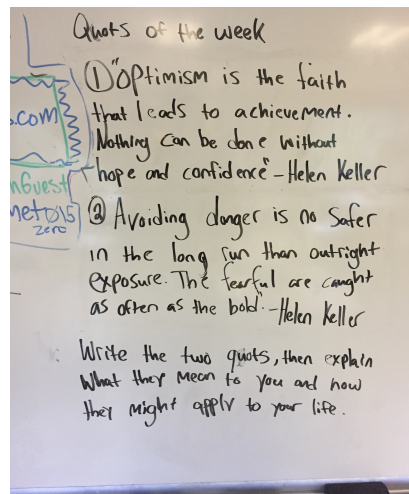 Quots of the week
① "Optimism is the faith
that leads to achievement.
Nothing can be done without
hope and confidence" - Helen Keller
② Avoiding danger is no safer
in the long run than outright
exposure. The fearful are caught
as often as the bold." - Helen Keller
Write the two quots, then explain
what they mean to you and how
they might apply to your life.
s.com
nGuest
net015
zero